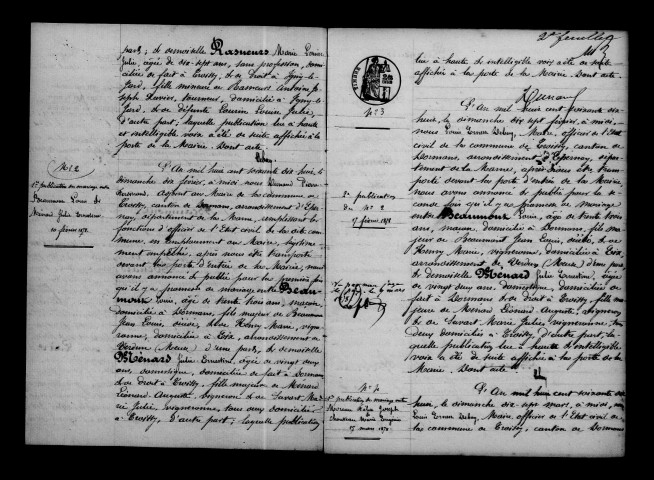 part; de demoiselle Rasneurs Marie Louise
Julie, âgée de dix-sept ans, sans profession, domi-
ciliée de fait à Troissy, et de Droit à Igny-le-
Jard, fille mineure de Rasneurs Antoine Jo-
seph Xavier, tourneur, domicilié à Igny-le-
Jard, et de défunte Louise Julie,
d'autre part; laquelle publication lue à haute
et intelligible voix a été de suite affichée à la
porte de la Mairie. Dont acte.
Debay
N° 2
1re publication de mariage entre
Beaumont Louis et
Ménard Julie Ernestine
10 février 1878
L'An mil huit cent soixante dix-huit, le
dimanche dix février, à midi, nous Ménard
adjoint au Maire de la commune de
Troissy, canton de Dormans, arrondissement d'Eper-
nay, département de la Marne, remplissant les
fonctions d'officier de l'Etat civil de la dite com-
mune en remplacement du Maire, légitime-
ment empêché, après nous être transporté
devant la porte d'entrée de la Mairie, nous
avons annoncé et publié pour la première fois
qu'il y a promesse de mariage entre Beau-
mont Louis, âgé de trente trois ans, maçon,
domicilié à Dormans, fils majeur de Beaumont
Jean Louis, décédé, et de Henry Marie, vigne-
ronne, domiciliée à arrondissement de
Verdun (Meuse) d'une part, et demoiselle
Ménard Julie Ernestine, âgée de vingt deux
ans, domestique, domiciliée de fait à Dormans
et de droit à Troissy, fille majeure de Ménard
Léonard Auguste, vigneron et de Savart Ma-
rie Julie, vigneronne, tous deux domiciliés
à Troissy, d'autre part; laquelle publication
2e feuillet
lue à haute et intelligible voix a été de suite
affichée à la porte de la Mairie. Dont acte.
Ménard
N° 3
2e publication
du N° 2
17 février 1878
L'An mil huit cent soixante dix-
huit, le dimanche dix sept février, à midi,
nous Louis Debay, Maire, officier de l'Etat
civil de la commune de Troissy, canton de
Dormans, arrondissement d'Epernay, dépar-
tement de la Marne, après nous être trans-
porté devant la porte d'entrée de la Mairie,
nous avons annoncé et publié pour la se-
conde fois qu'il y a promesse de mariage
entre Beaumont Louis, âgé de trente trois
ans, maçon, domicilié à Dormans, fils ma-
jeur de Beaumont Jean Louis, décédé, et de
Henry Marie, vigneronne, domiciliée à
arrondissement de Verdun (Meuse) d'une part,
et demoiselle Ménard Julie Ernestine, âgée
de vingt deux ans, domestique, domiciliée de
fait à Dormans et de droit à Troissy, fille ma-
jeure de Ménard Léonard Auguste, vigneron
et de Savart Marie Julie, vigneronne, tous
deux domiciliés à Troissy, d'autre part; la-
quelle publication lue à haute et intelligible
voix a été de suite affichée à la porte de la
Mairie. Dont acte.
N° 4
1re publication de mariage entre
Joseph
17 mars 1878
L'An mil huit cent soixante dix-
huit, le dimanche dix-sept mars, à midi, nous
Louis Debay, Maire, officier de l'Etat civil de
la commune de Troissy, canton de Dormans